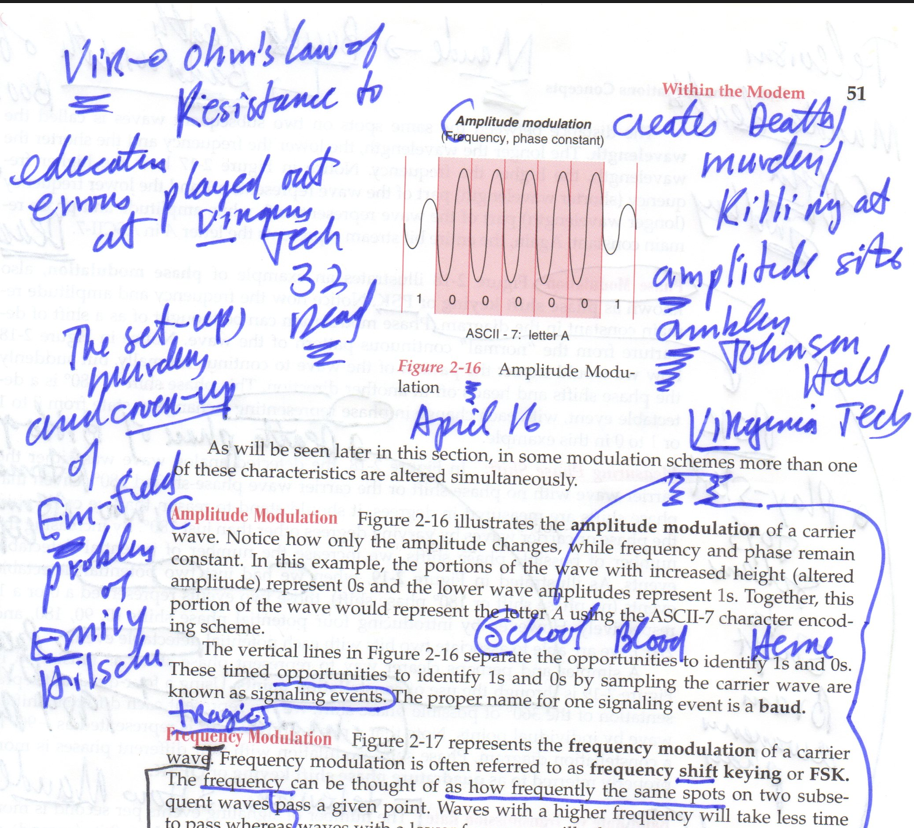 Within the Modem 51
Amplitude modulation
(Frequency, phase constant)
1 0 0 0 0 0 1
ASCII - 7: letter A
Figure 2-16 Amplitude Modu-
lation
VIR→ Ohm's law of
Resistance to
education
errors played out
at Virginia
Tech
32
Dead
The set-up,
murders
and cover-up
of
Em-field
problem
of
Emily
Hilscher
creates Deaths/
murder/
Killing at
amplitude sites
ambler
Johnson
Hall
Virginia Tech
April 16
As will be seen later in this section, in some modulation schemes more than one
of these characteristics are altered simultaneously.
Amplitude Modulation Figure 2-16 illustrates the amplitude modulation of a carrier
wave. Notice how only the amplitude changes, while frequency and phase remain
constant. In this example, the portions of the wave with increased height (altered
amplitude) represent 0s and the lower wave amplitudes represent 1s. Together, this
portion of the wave would represent the letter A using the ASCII-7 character encod-
ing scheme.
School Blood Heme
The vertical lines in Figure 2-16 separate the opportunities to identify 1s and 0s.
These timed opportunities to identify 1s and 0s by sampling the carrier wave are
known as signaling events. The proper name for one signaling event is a baud.
tragic
Frequency Modulation Figure 2-17 represents the frequency modulation of a carrier
wave. Frequency modulation is often referred to as frequency shift keying or FSK.
The frequency can be thought of as how frequently the same spots on two subse-
quent waves pass a given point. Waves with a higher frequency will take less time
to pass whereas waves with a